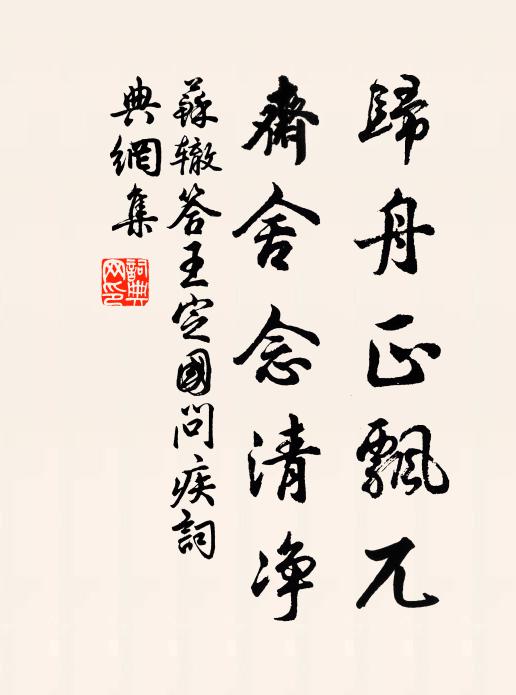 歸舟正飄兀
齋舍念清淨
蘇辙答王定國問疾詞
典網集
詞典网印